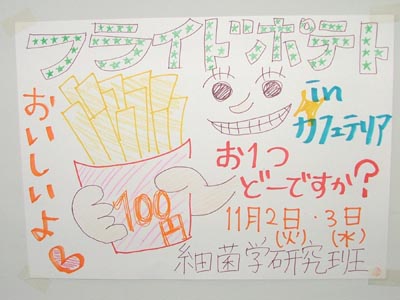 フライドポテト
in
カフェテリア
おいしいよ
100円
お1つ
どーですか?
11月2日・3日
(火) (水)
細菌学研究班